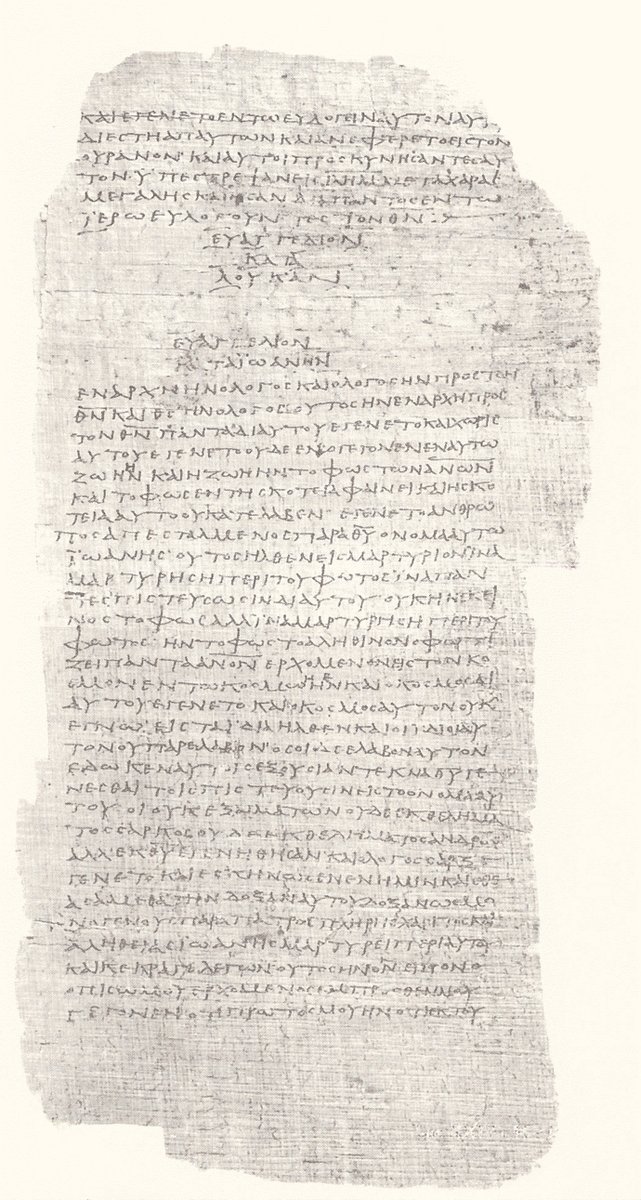 ΚΑΙΕΓΕΝΕΤΟΕΝΤΩΕΥΛΟΓΕΙΝΑΥΤΟΝΑΥ
ΔΙΕΣΤΗΑΠΑΥΤΩΝΚΑΙΑΝΕΦΕΡΕΤΟΕΙΣΤΟΝ
ΟΥΡΑΝΟΝ ΚΑΙΑΥΤΟΙΠΡΟΣΚΥΝΗΣΑΝΤΕΣΑΥ
ΤΟΝΥΠΕΣΤΡΕΨΑΝΕΙΣ ΜΕΤΑΧΑΡΑΣ
ΜΕΓΑΛΗΣΚΑΙΗΣΑΝΔΙΑΠΑΝΤΟΣΕΝΤΩ
ΪΕΡΩΕΥΛΟΓΟΥΝΤΕΣΤΟΝΘΝ
ΕΥΑΓΓΕΛΙΟΝ
ΚΑΤΑ
ΛΟΥΚΑΝ
ΕΥΑΓΓΕΛΙΟΝ
ΚΑΤΑΪΩΑΝΗΝ
ΕΝΑΡΧΗΗΝΟΛΟΓΟΣΚΑΙΟΛΟΓΟΣΗΝΠΡΟΣΤΟΝ
ΘΝΚΑΙΘΣΗΝΟΛΟΓΟΣΟΥΤΟΣΗΝΕΝΑΡΧΗΠΡΟΣ
ΤΟΝΘΝΠΑΝΤΑΔΙΑΥΤΟΥΕΓΕΝΕΤΟΚΑΙΧΩΡΙΣ
ΑΥΤΟΥΕΓΕΝΕΤΟΟΥΔΕΕΝΟΓΕΓΟΝΕΝΕΝΑΥΤΩ
ΖΩΗΗΝΚΑΙΗΖΩΗΗΝΤΟΦΩΣΤΩΝΑΝΩΝ
ΚΑΙΤΟΦΩΣΕΝΤΗΣΚΟΤΕΙΑΦΑΙΝΕΙΚΑΙΗΣΚΟ
ΤΕΙΑΑΥΤΟΟΥΚΑΤΕΛΑΒΕΝ ΕΓΕΝΕΤΟΑΝΘΡΩ
ΠΟΣΑΠΕΣΤΑΛΜΕΝΟΣΠΑΡΑΘΥΟΝΟΜΑΑΥΤΩ
ΪΩΑΝΗΣ ΟΥΤΟΣΗΛΘΕΝΕΙΣΜΑΡΤΥΡΙΟΝΪΝΑ
ΜΑΡΤΥΡΗΣΗΠΕΡΙΤΟΥΦΩΤΟΣΪΝΑΠΑΝ
ΤΕΣΠΙΣΤΕΥΣΩΣΙΝΔΙΑΥΤΟΥ ΟΥΚΗΝΕΚΕΙ
ΝΟΣΤΟΦΩΣΑΛΛΪΝΑΜΑΡΤΥΡΗΣΗΠΕΡΙΤΟΥ
ΦΩΤΟΣ ΗΝΤΟΦΩΣΤΟΑΛΗΘΙΝΟΝΟΦΩΤΙ
ΖΕΙΠΑΝΤΑΑΝΟΝΕΡΧΟΜΕΝΟΝΕΙΣΤΟΝΚΟ
ΣΜΟΝΕΝΤΩΚΟΣΜΩΗΝΚΑΙΟΚΟΣΜΟΣΔΙ
ΑΥΤΟΥΕΓΕΝΕΤΟΚΑΙΟΚΟΣΜΟΣΑΥΤΟΝΟΥΚ
ΕΓΝΩ ΕΙΣΤΑΪΔΙΑΗΛΘΕΝΚΑΙΟΙΪΔΙΟΙΑΥ
ΤΟΝΟΥΠΑΡΕΛΑΒΟΝ ΟΣΟΙΔΕΕΛΑΒΟΝΑΥΤΟΝ
ΕΔΩΚΕΝΑΥΤΟΙΣΕΞΟΥΣΙΑΝΤΕΚΝΑΘΥΓΕ
ΝΕΣΘΑΙΤΟΙΣΠΙΣΤΕΥΟΥΣΙΝΕΙΣΤΟΟΝΟΜΑΑΥ
ΤΟΥ ΟΙΟΥΚΕΞΑΙΜΑΤΩΝΟΥΔΕΕΚΘΕΛΗΜΑ
ΤΟΣΣΑΡΚΟΣΟΥΔΕΕΚΘΕΛΗΜΑΤΟΣΑΝΔΡΟΣ
ΑΛΛΕΚΘΥΕΓΕΝΗΘΗΣΑΝΚΑΙΟΛΟΓΟΣΣΑΡΞΕ
ΓΕΝΕΤΟΚΑΙΕΣΚΗΝΩΣΕΝΕΝΗΜΙΝΚΑΙΕΘΕ
ΑΣΑΜΕΘΑΤΗΝΔΟΞΑΝΑΥΤΟΥΔΟΞΑΝΩΣΜΟ
ΝΟΓΕΝΟΥΣΠΑΡΑΠΑΤΡΟΣΠΛΗΡΗΣΧΑΡΙΤΟΣΚΑΙ
ΑΛΗΘΕΙΑΣΪΩΑΝΗΣΜΑΡΤΥΡΕΙΠΕΡΙΑΥΤΟΥ
ΚΑΙΚΕΚΡΑΓΕΛΕΓΩΝΟΥΤΟΣΗΝΟΝΕΙΠΟΝΟ
ΟΠΙΣΩΜΟΥΕΡΧΟΜΕΝΟΣΕΜΠΡΟΣΘΕΝΜΟΥ
ΓΕΓΟΝΕΝΟΤΙΠΡΩΤΟΣΜΟΥΗΝΟΤΙΕΚΤΟΥ